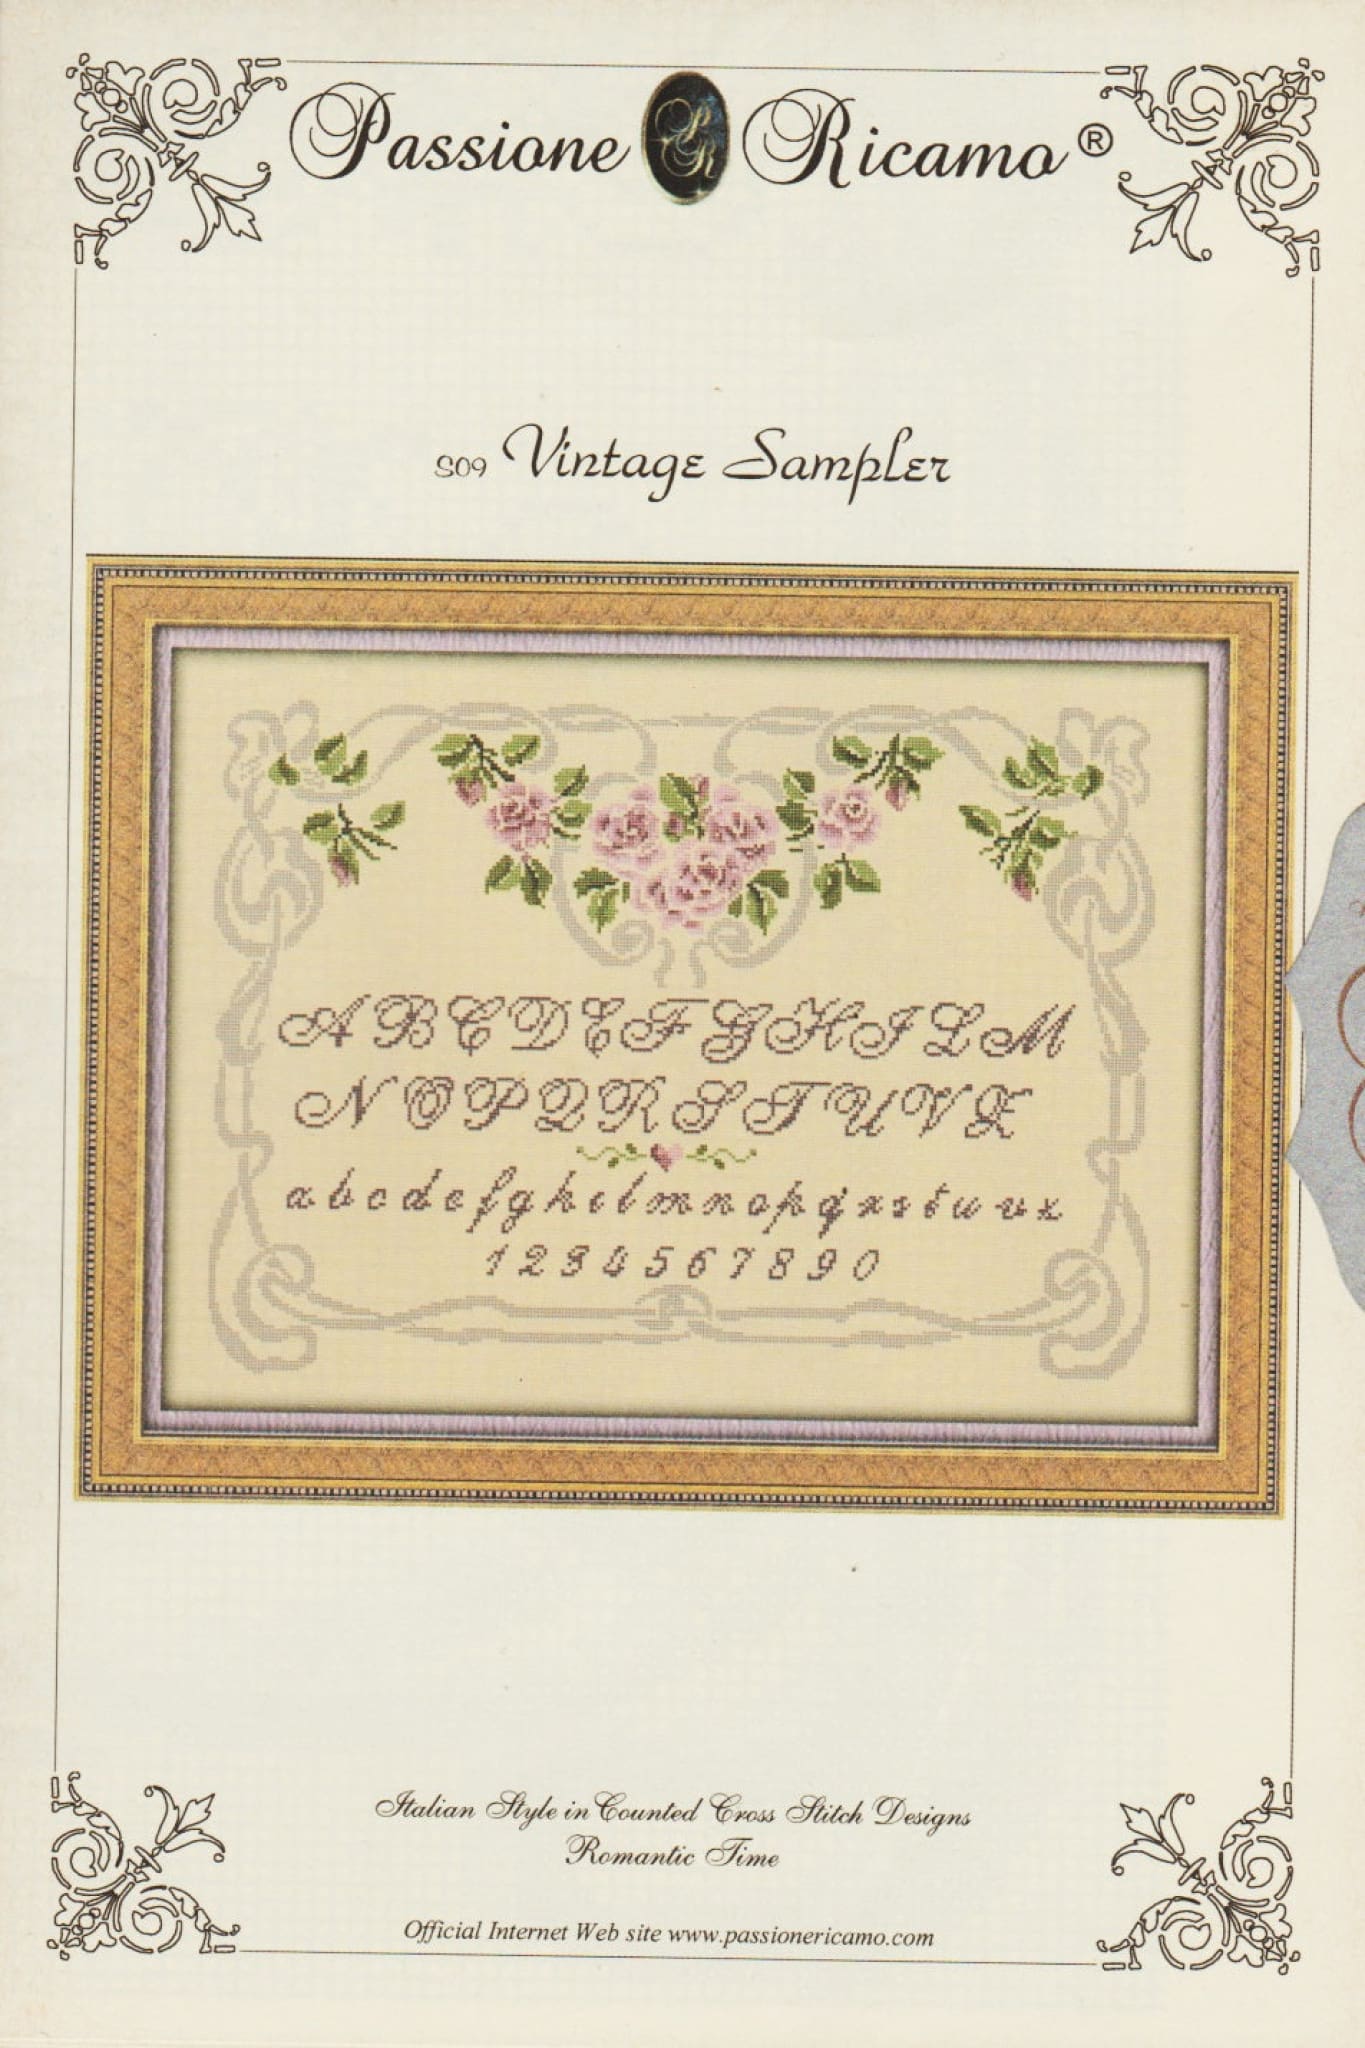 Passione PR Ricamo®
S09 Vintage Sampler
A B C D E F G H I L M
N O P Q R S T U V Z
a b c d e f g h i l m n o p q r s t u v z
1 2 3 4 5 6 7 8 9 0
Italian Style in Counted Cross Stitch Designs
Romantic Time
Official Internet Web site www.passionericamo.com